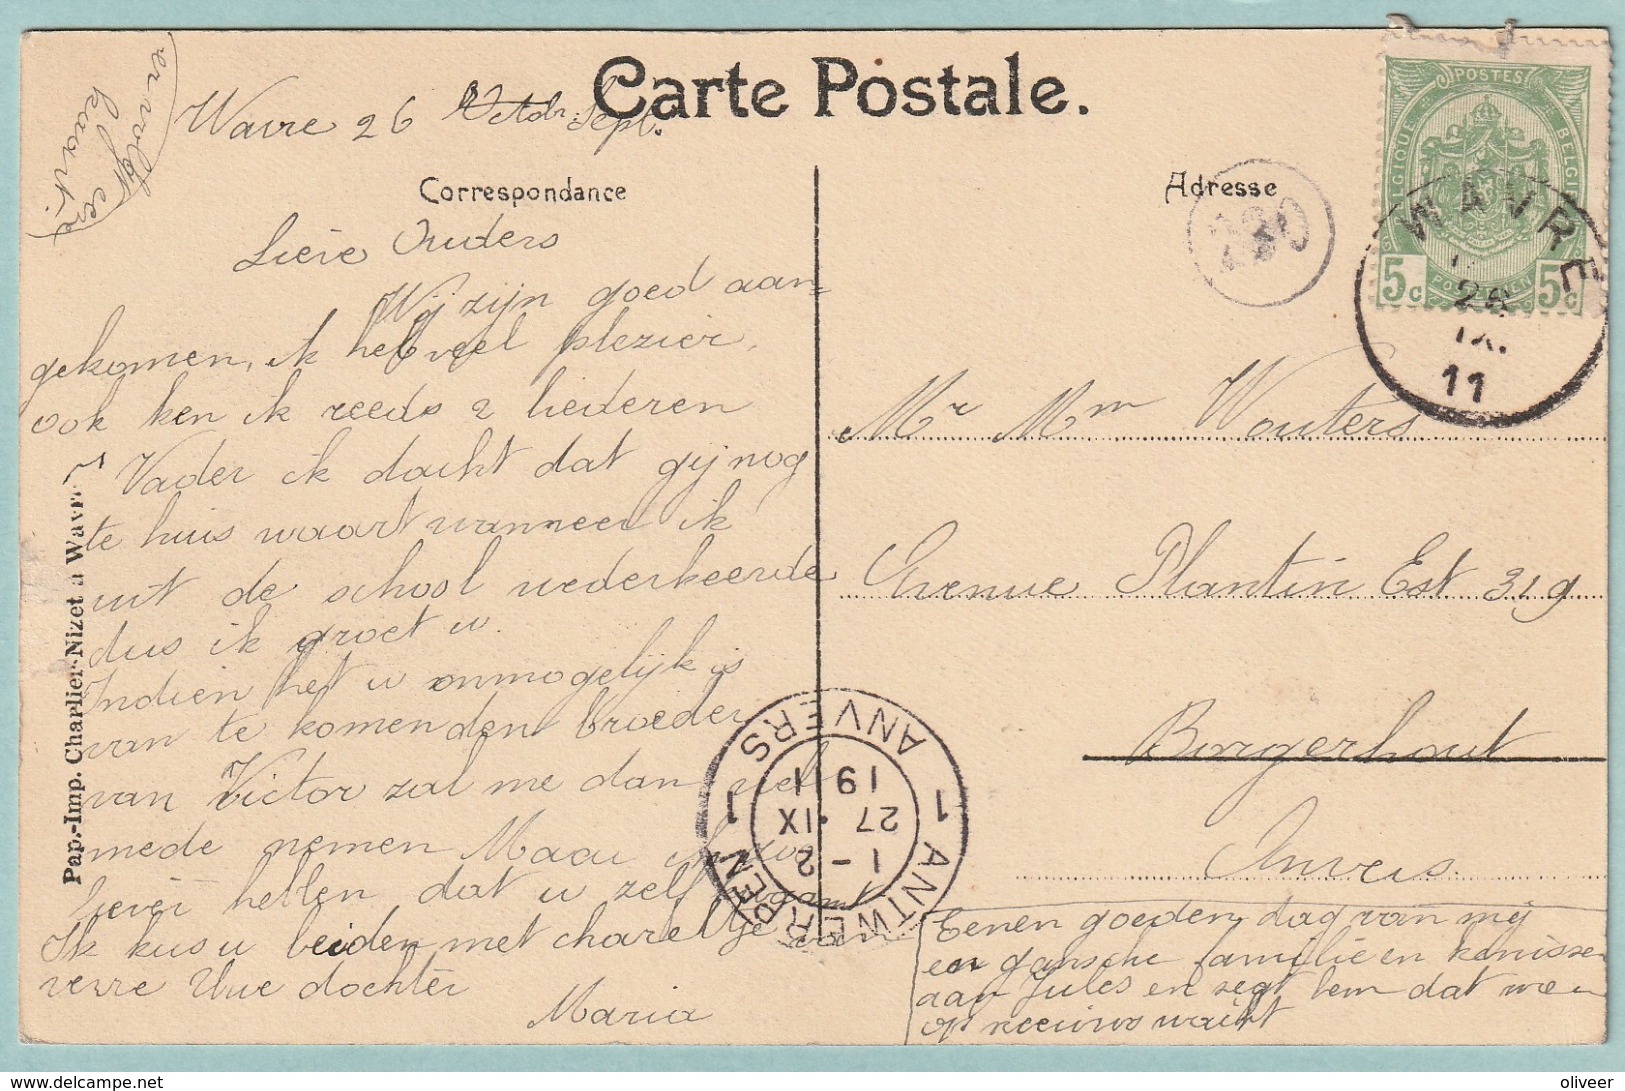 Carte Postale.
Wavre 26 Octobr. Sept.
Correspondance
Adresse
Lieve Ouders
Wij zijn goed aan=
gekomen, ik heb veel plezier,
ook ken ik reeds 2 liederen
Vader ik dacht dat gij nog
te huis waart wanneer ik
uit de school wederkeerde
dus ik groet u.
Indien het u onmogelijk is
van te komen den broeder
van Victor zal me dan wel
mede nemen Maar ik zou
liever hebben dat u zelf kwaamt
Ik kus u beiden met chareltje
verre Uwe dochter
Maria
kaart.
Mr Mm Wouters
Avenue Plantin Est 319
Borgerhout
Anvers
Eenen goeden dag van mij
en gansche familie en kenissen
aan Jules en zegt hem dat we
op nieuws wacht
POSTES
BELGIQUE BELGIË
5c POSTERIJEN 5c
WAVRE
26
IX.
11
1 ANTWERPEN 1 ANVERS
1 - 2
27 IX
1911
Pap.-Imp. Charlier-Nizet à Wavre
delcampe.net
oliveer